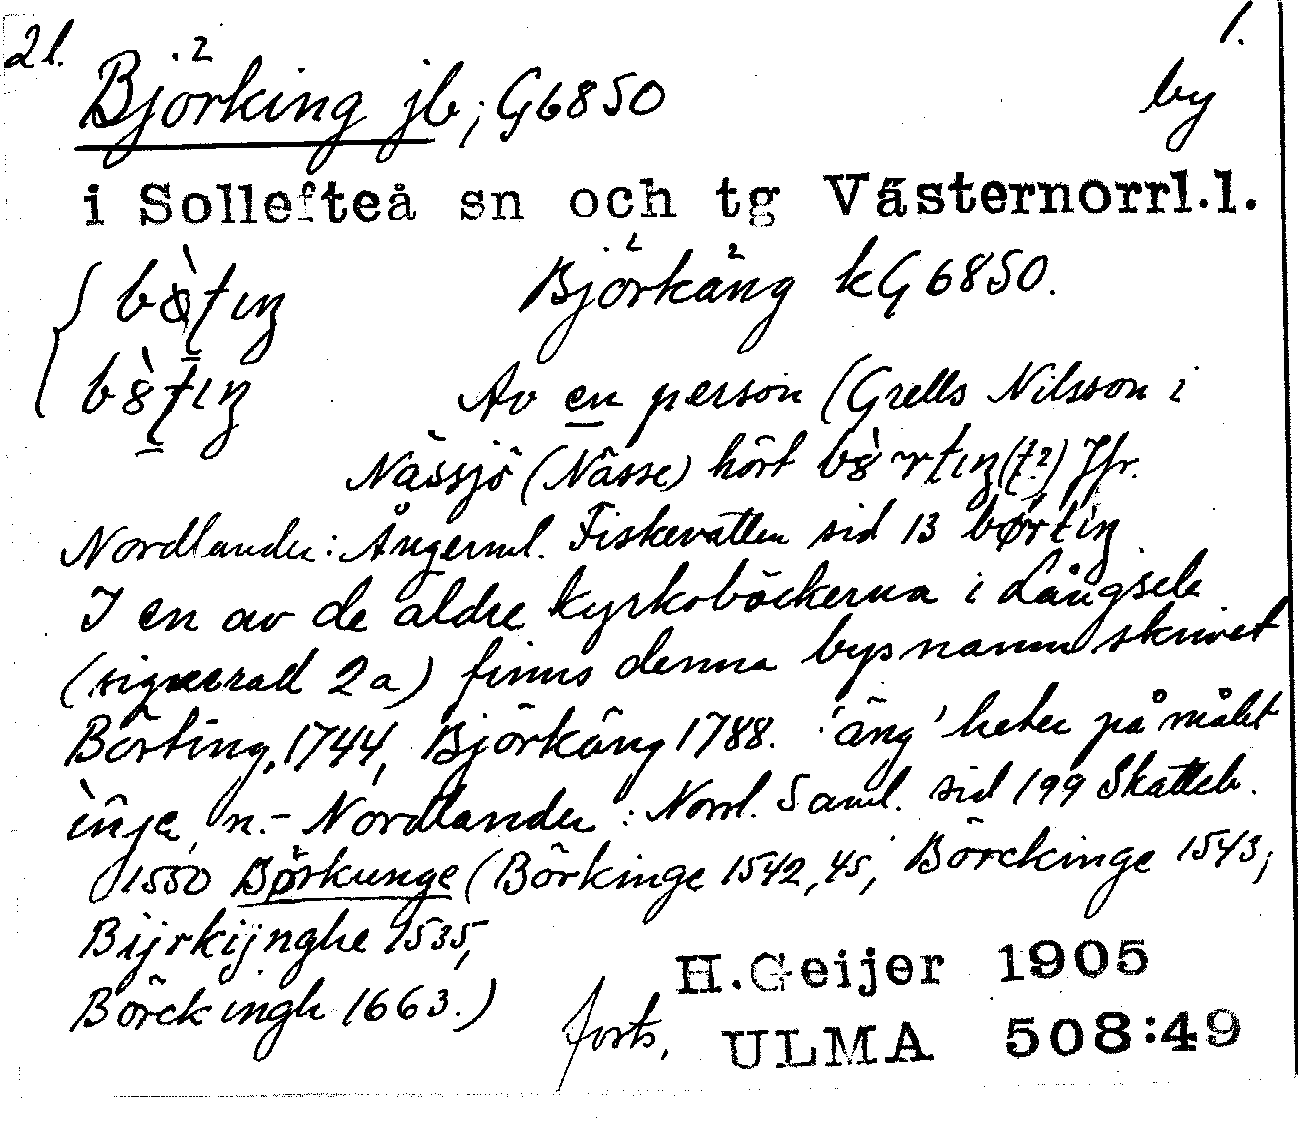 2 l. 1.
Björking jb; G6850 by
i Sollefteå sn och tg Västernorrl.l.
Björkäng kG 6850.
Av en person (Grells Nilsson i
Nässjö (Nässe) hört
Nordlander: Ångerml. Fiskevatten sid 13 børtiŋ
I en av de äldre kyrkoböckerna i Långsele
(signerad 2a) finns denna bysnamn skrivet
Börting, 1744, Björkäng 1788. 'äng' heter på målet
ìnje, n.- Nordlander: Norrl. Saml. sid 199 Skatteb.
1550 Børkunge (Börkinge 1542, 45; Börckinge 1543;
Bijrkijnghe 1535,
Börckingh 1663.)
H.Geijer 1905
forts. ULMA 508:49